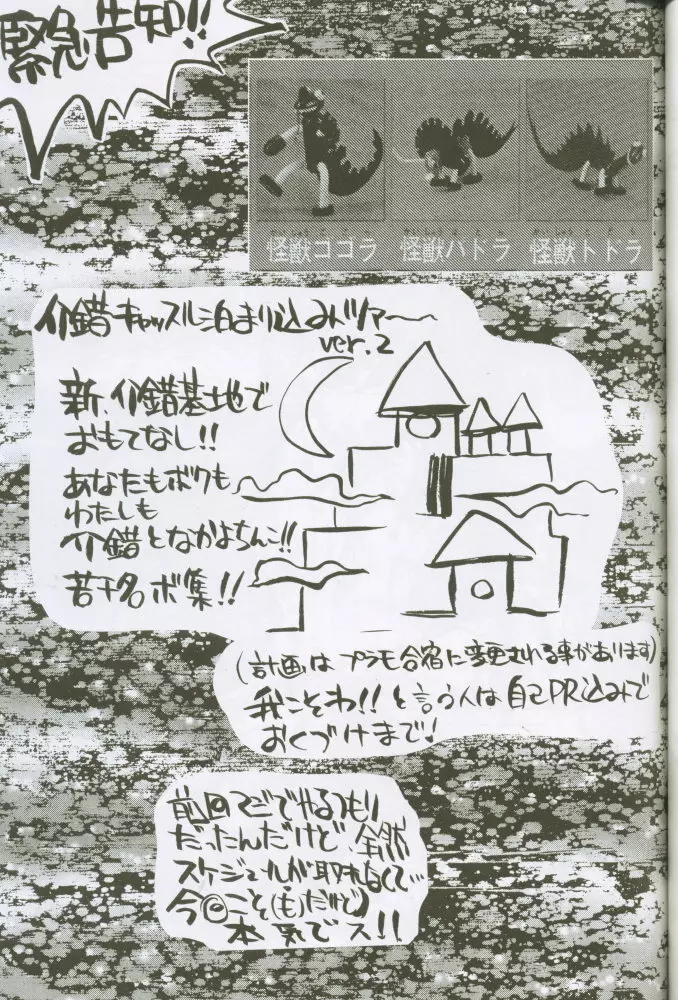 緊急告知!!
怪獣ココラ
怪獣ハドラ
怪獣トドラ
介錯キャッスル泊まり込みツアー〜
ver.2
新、介錯基地で
おもてなし!!
あなたもボクも
わたしも
介錯となかよちんこ!!
若干名ボ集!!
(計画はプラモ合宿に変更される事があります)
我こそわ!!と言う人は自己PR込みで
おくづけまで!
前回マジでやるつもり
だったんだけど、全然
スケジュールが取れなくて…
今回こそ(も)だけど)
本気でス!!